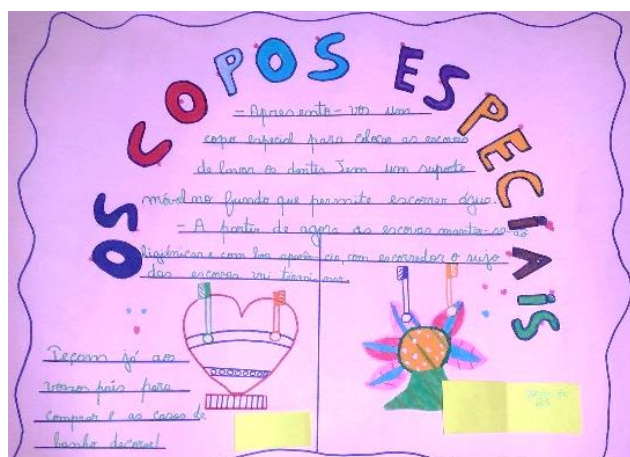 OS COPOS ESPECIAIS
- Apresento-vos um
copo especial para colocar as escovas
de lavar os dentes. Tem um suporte
móvel no fundo que permite escorrer água.
- A partir de agora as escovas manter-se-ão
higiénicas e com boa aparência, com escorredor o sujo
das escovas vai terminar.
Peçam já aos
vossos pais para
comprar e as casas de
banho decorar!